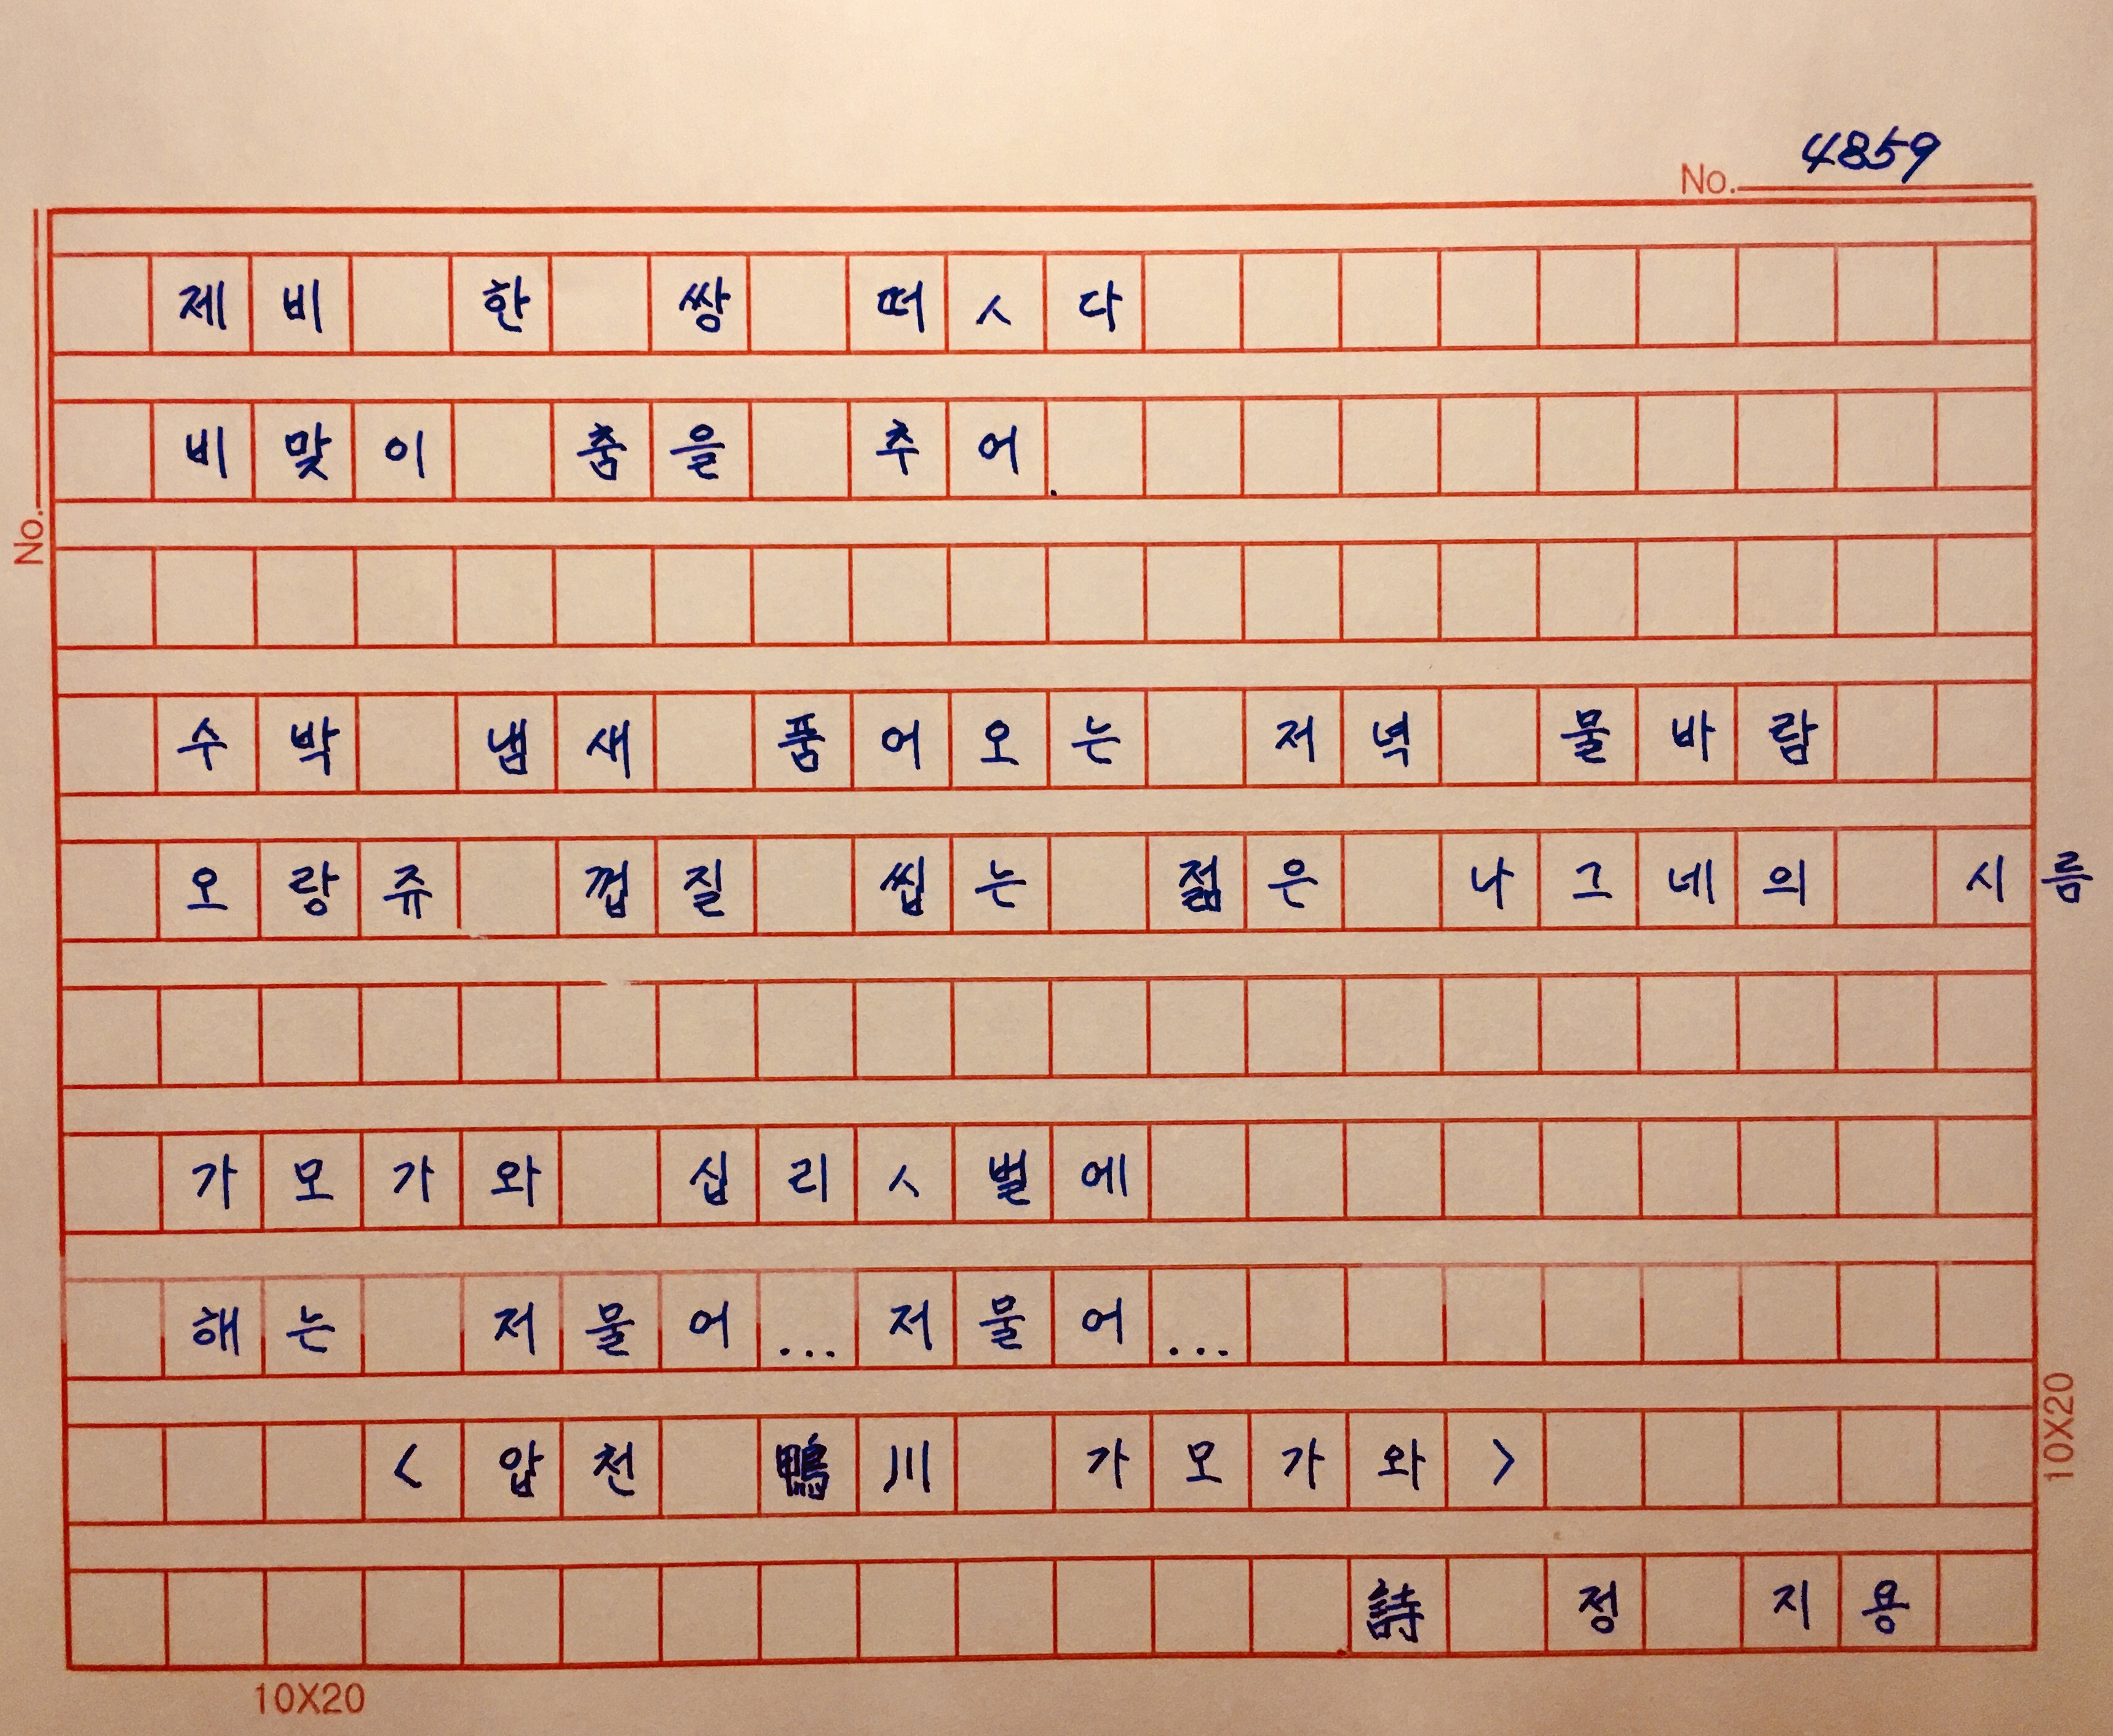 No. 4859
제비 한 쌍 떠ㅅ다
비맞이 춤을 추어.
No.
수박 냄새 품어오는 저녁 물바람
오랑쥬 껍질 씹는 젊은 나그네의 시름
가모가와 십리ㅅ벌에
해는 저물어...저물어...
<압천 鴨川 가모가와>
10X20
詩 정 지용
10X20